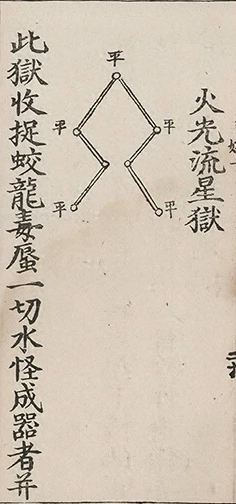 火光流星獄
平
平
平
平
平
此獄收捉蛟龍毒蜃一切水怪成器者并